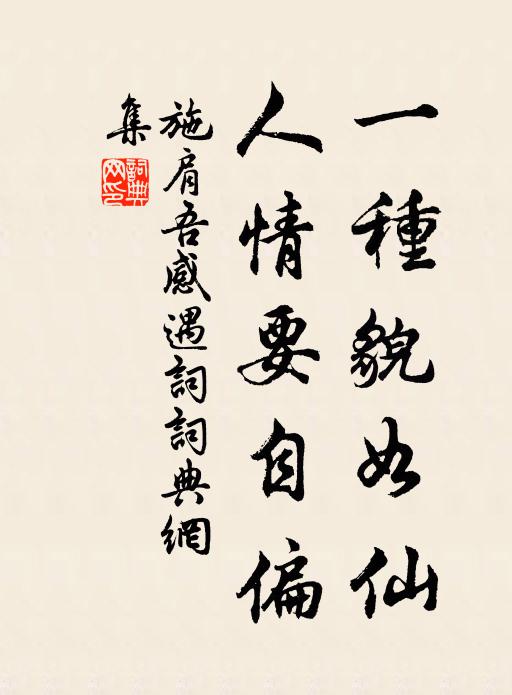 一種貌如仙
人情要自偏
施肩吾感遇詞詞典網
集
詞典網印